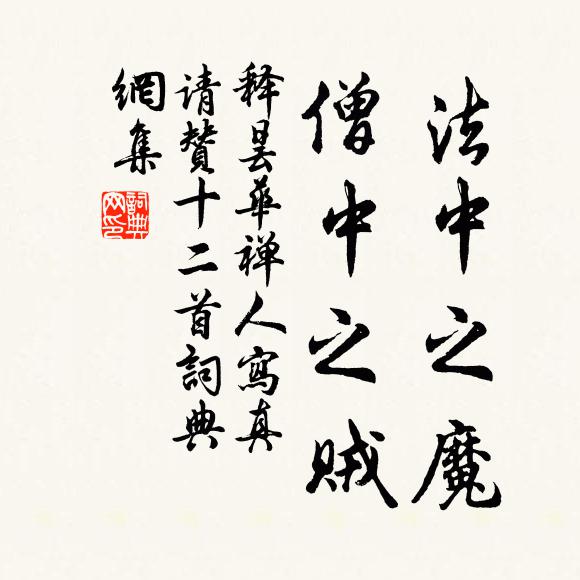 法中之魔
僧中之贼
释昙华禅人寫真
请赞十二首詞典
網集
詞典
网印